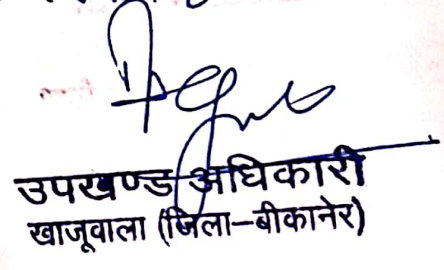 उपखण्ड अधिकारी
खाजूवाला (जिला–बीकानेर)